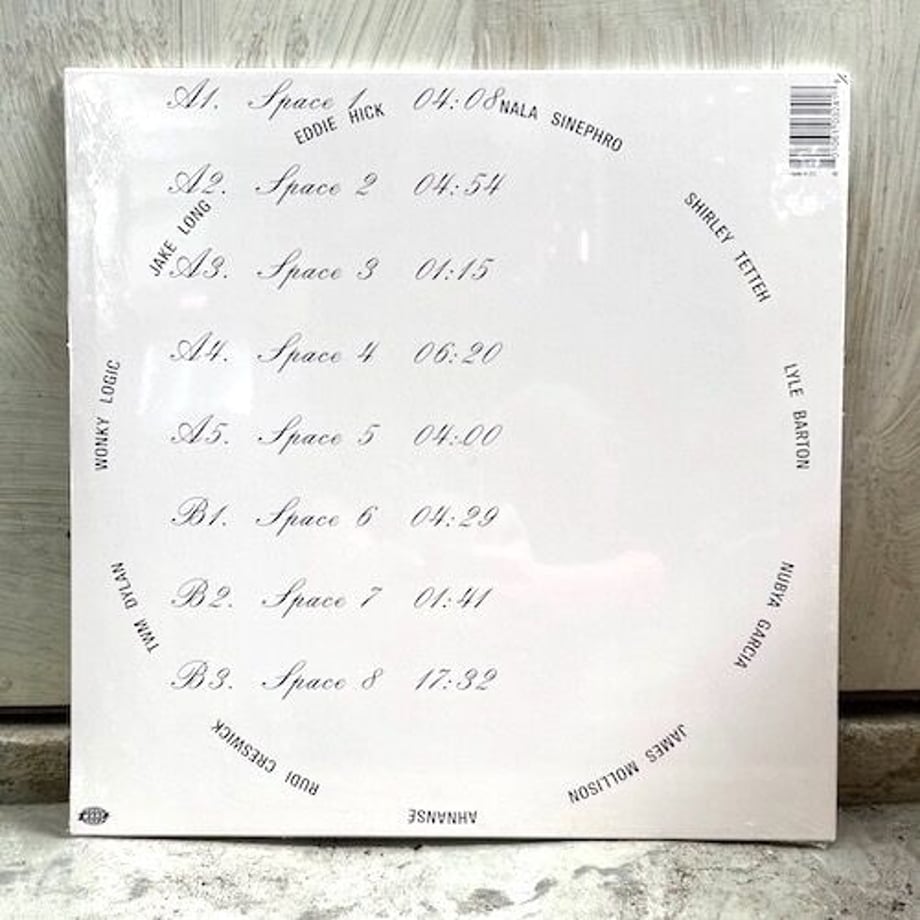 A1. Space 1 04:08
A2. Space 2 04:54
A3. Space 3 01:15
A4. Space 4 06:20
A5. Space 5 04:00
B1. Space 6 04:29
B2. Space 7 01:41
B3. Space 8 17:32
NALA SINEPHRO
SHIRLEY TETTEH
LYLE BARTON
NUBYA GARCIA
JAMES MOLLISON
AHNANSÉ
RUDI CRESWICK
TWM DYLAN
WONKY LOGIC
JAKE LONG
EDDIE HICK